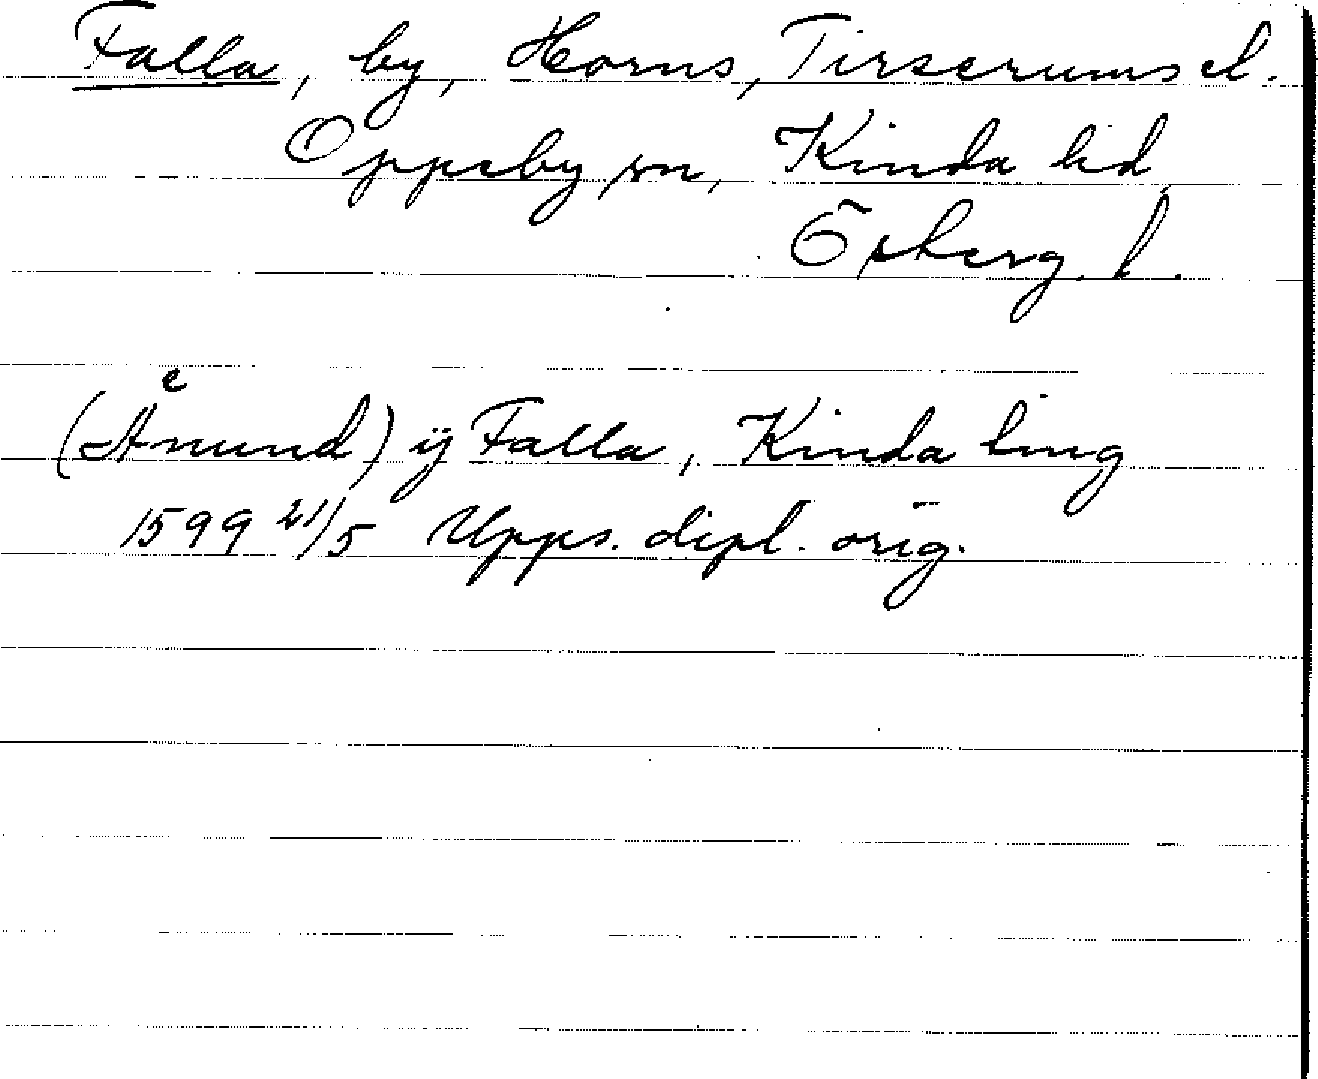 Falla, by, Horns, Tirserums el.
Oppeby sn, Kinda hd,
Österg. l.
(Åͤnund) ÿ Falla, Kinda ting
1599 21/5 Upps. dipl. orig.